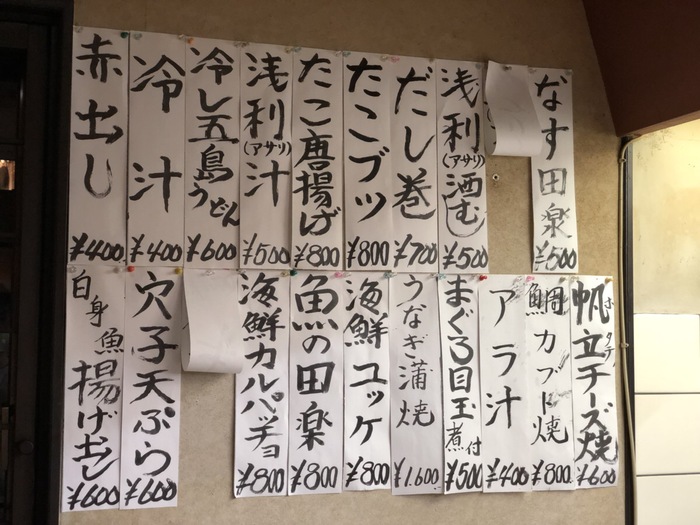 なす田楽
¥500
浅利(アサリ)酒むし
¥500
だし巻
¥700
たこブツ
¥800
たこ唐揚げ
¥800
浅利(アサリ)汁
¥500
冷し五島うどん
¥600
冷汁
¥400
赤出し
¥400
帆立チーズ焼
ホタテ
¥600
鯛カブト焼
¥800
アラ汁
¥400
まぐろ目玉煮付
¥500
うなぎ蒲焼
¥1.600
海鮮ユッケ
¥800
魚の田楽
¥800
海鮮カルパッチョ
¥800
穴子天ぷら
¥600
白身魚揚げ出し
¥600